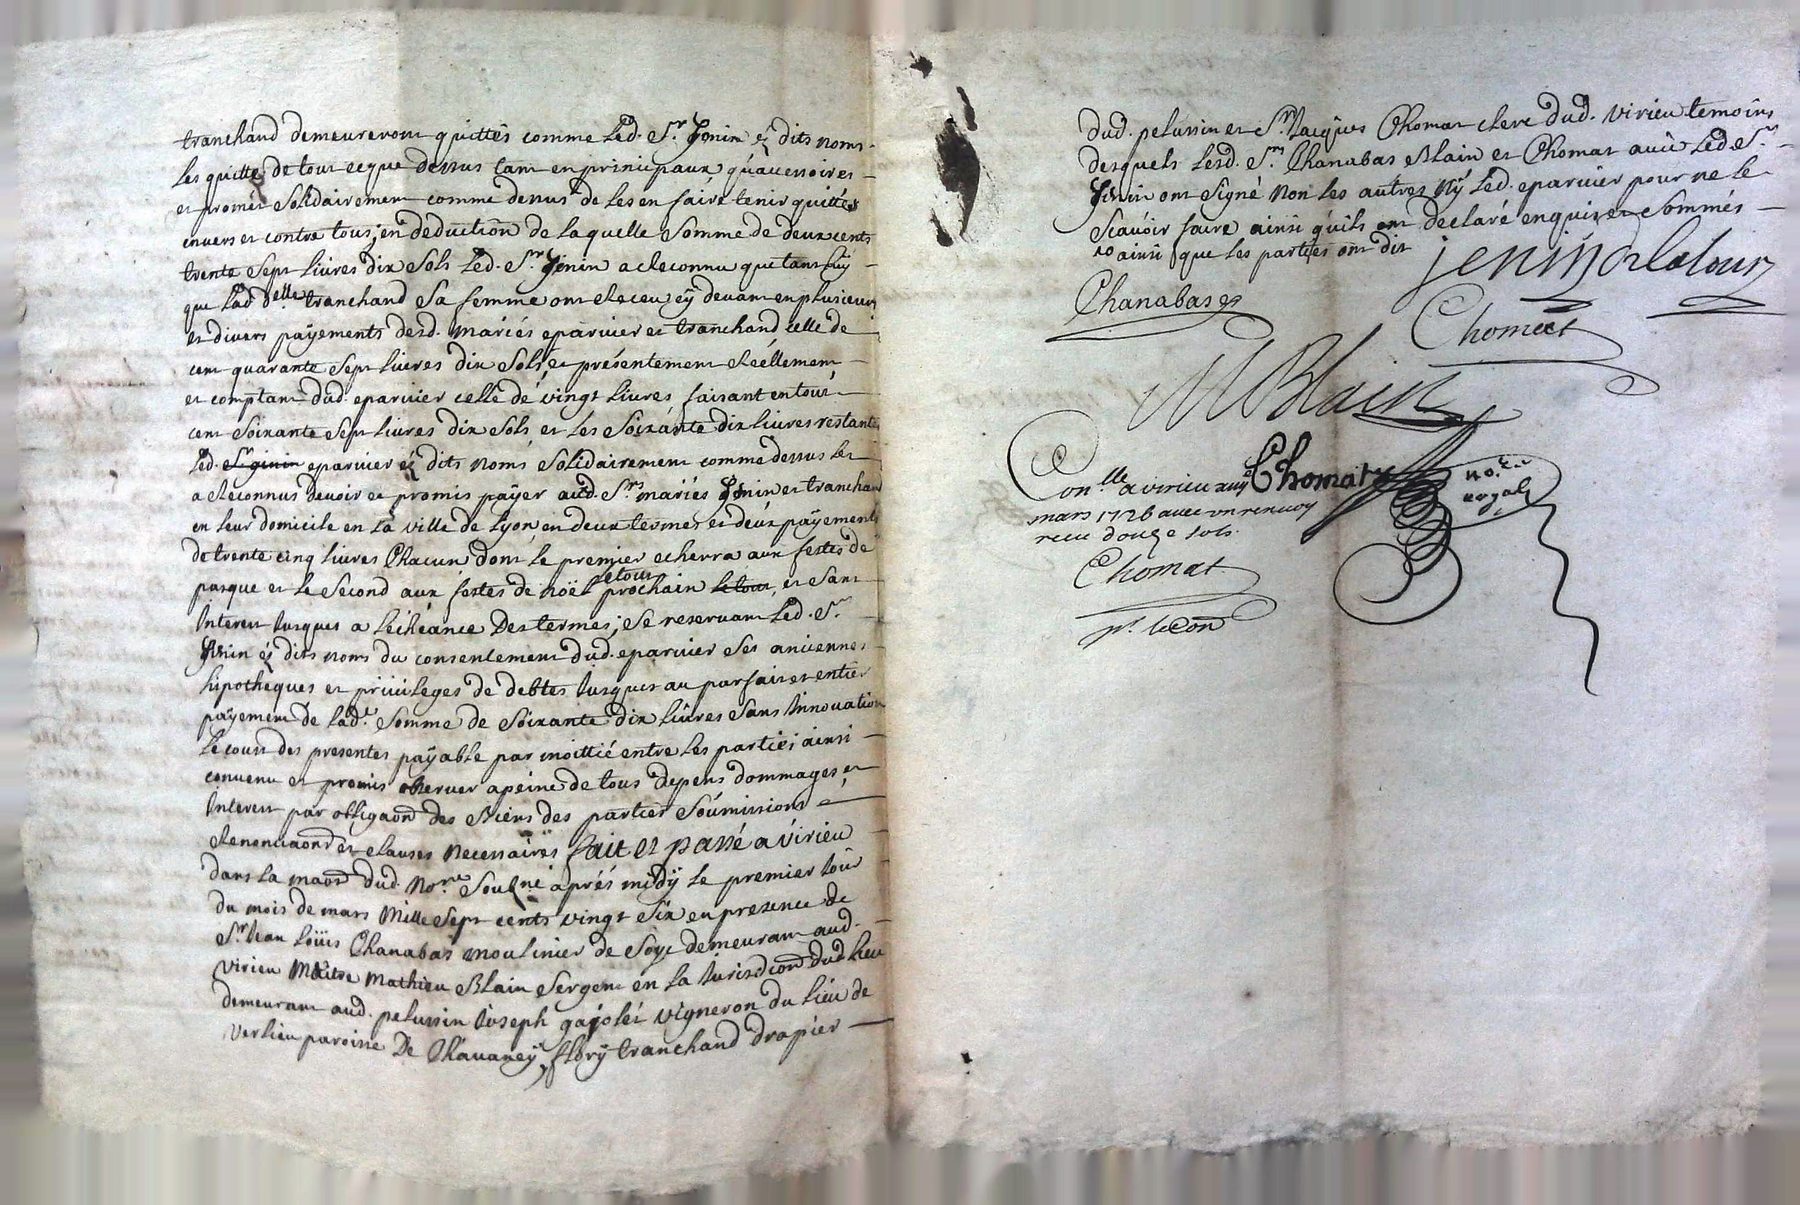 tranchand demeureront quittes comme led. Sr. Jenin ez dits noms
les quitte de tout ceque dessus tant en principaux qu'accessoires
et promet solidairement comme dessus de les en faire tenir quittes
envers et contre tous; en deduction de laquelle somme de deux cents
trente sept livres dix sols led. Sr. Jenin a reconnu que tant luy
que lad delle tranchand sa femme ont receu cy devant en plusieurs
et divers payements desd. mariés eparvier et tranchand celle de
cent quarante sept livres dix sols, et présentement réellement
et comptant dud. eparvier celle de vingt livres faisant en tout
cent soixante sept livres dix sols et les soixante dix livres restants
led. Sr ginin eparvier ez dits noms solidairement comme dessus les
a reconnus devoir et promis payer aud. Srs mariés Jenin et tranchand
en leur domicile en la ville de Lyon, en deux termes et deux payements
de trente cinq livres chacun dont le premier echerra aux festes de
pasque et le second aux festes de noël letout prochain le tout, et sans
interest jusques a l'échéance des termes; se reservant led. Sr.
Jenin ez dits noms du consentement dud. eparvier ses anciennes
hipotheques et privileges de debtes jusques au parfait et entier
payement de lade. somme de soixante dix livres sans innovation
le coust des presentes payable par moittié entre les parties ainsi
convenu et promis observer a peine de tous depens dommages et
interest par obligaon des biens des parties soumissions
Renonciaons et clauses necessaires fait et passé a virieu
dans la maon dud. nore. soubné après midÿ le premier jour
du mois de mars mille sept cents vingt six en presence de
Sr. Jean Loüis Chanabas moulinier de soye demeurant aud.
virieu Maitre Mathieu Blain sergent en la Jurisdicon dud. lieu
demeurant aud. pelussin Joseph gajolet vigneron du lieu de
verlieu paroisse De Chavaneÿ, flory tranchand drapier
dud. pelussin et Sr. Jacques Chomat clerc dud. virieu temoins
desquels lesd. Srs. Chanabas Blain et Chomat avec led. Sr.
Jenin ont signé non les autres nÿ led. eparvier pour ne le
scavoir faire ainsi qu'ils ont declaré enquis et sommés
ainsi que les parties ont dit
jenin delatour
Chanabas
Chomat
M Blain
Conlle a virieu
mars 1726 avec un renvoy
receu douze sols
Chomat nore. royal
Chomat